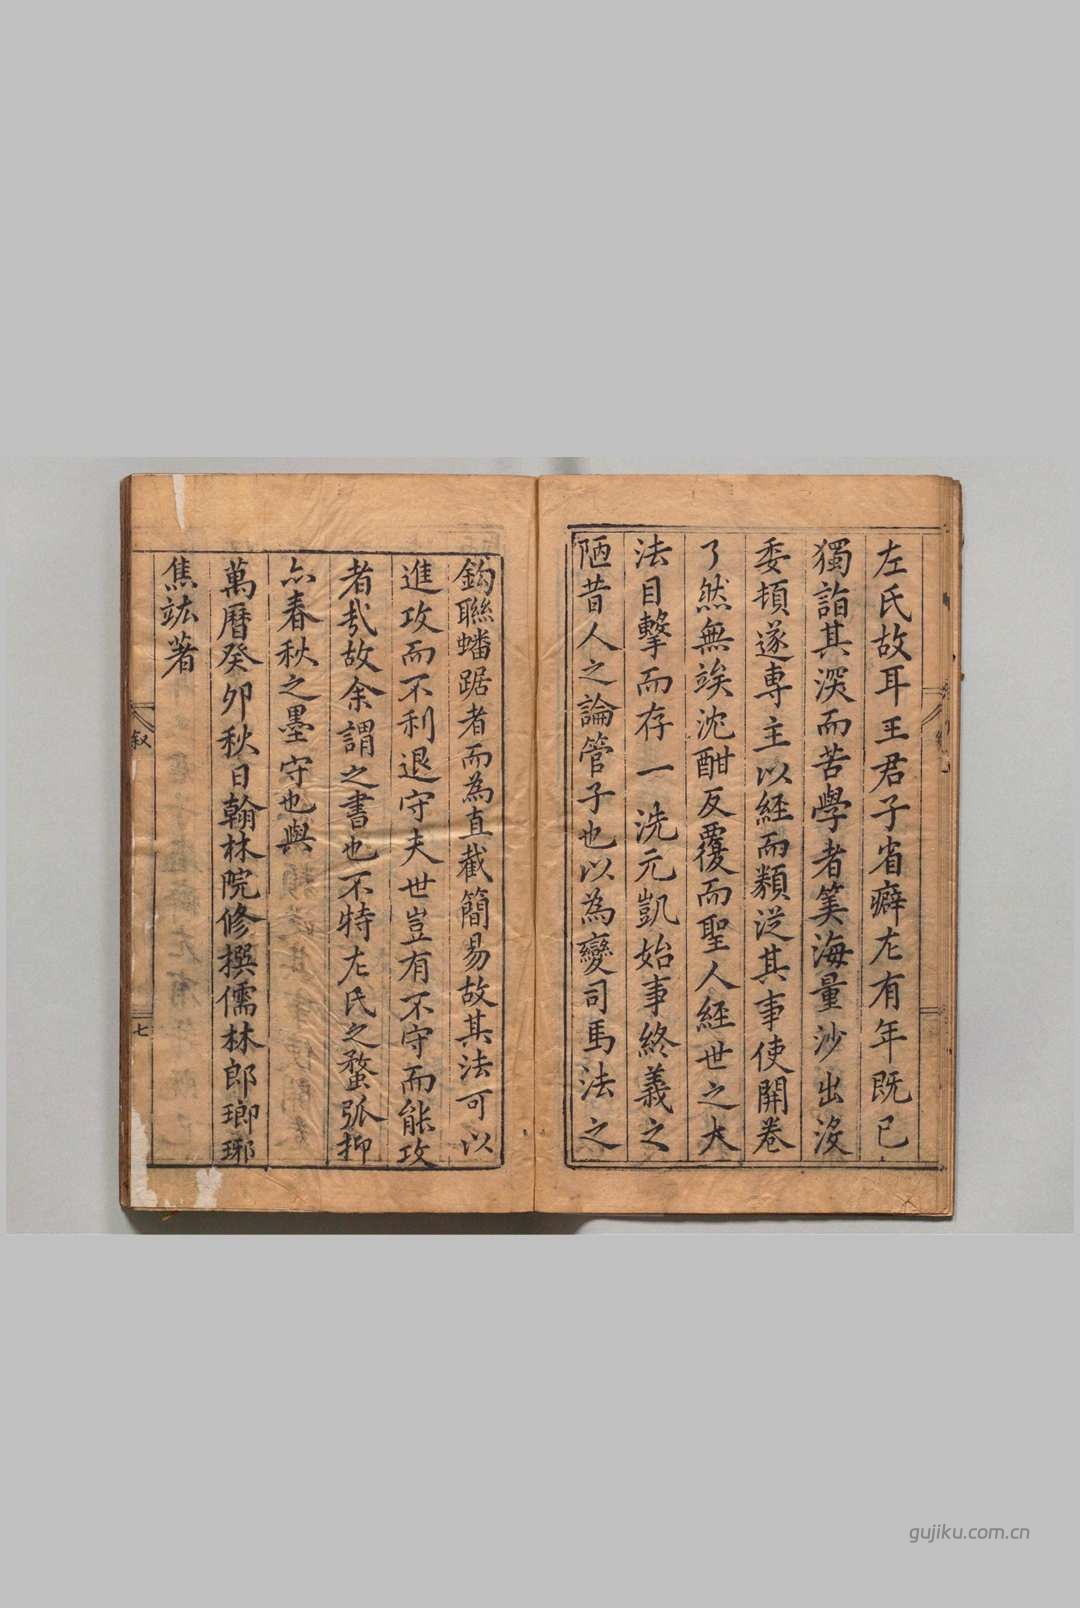 左氏故耳王君子省癖左有年既已
獨詣其深而苦學者筭海量沙出沒
委頓遂專主以經而類從其事使開卷
了然無俟沈酣反覆而聖人經世之大
法目擊而存一洗元凱始事終義之
陋昔人之論管子也以為變司馬法之
鈎聯蟠踞者而為直截簡易故其法可以
進攻而不利退守夫世豈有不守而能攻
者㢤故余謂之書也不特左氏之蝥弧抑
亦春秋之墨守也與
萬曆癸卯秋日翰林院修撰儒林郎瑯琊
焦竑著
叙
七
gujiku.com.cn